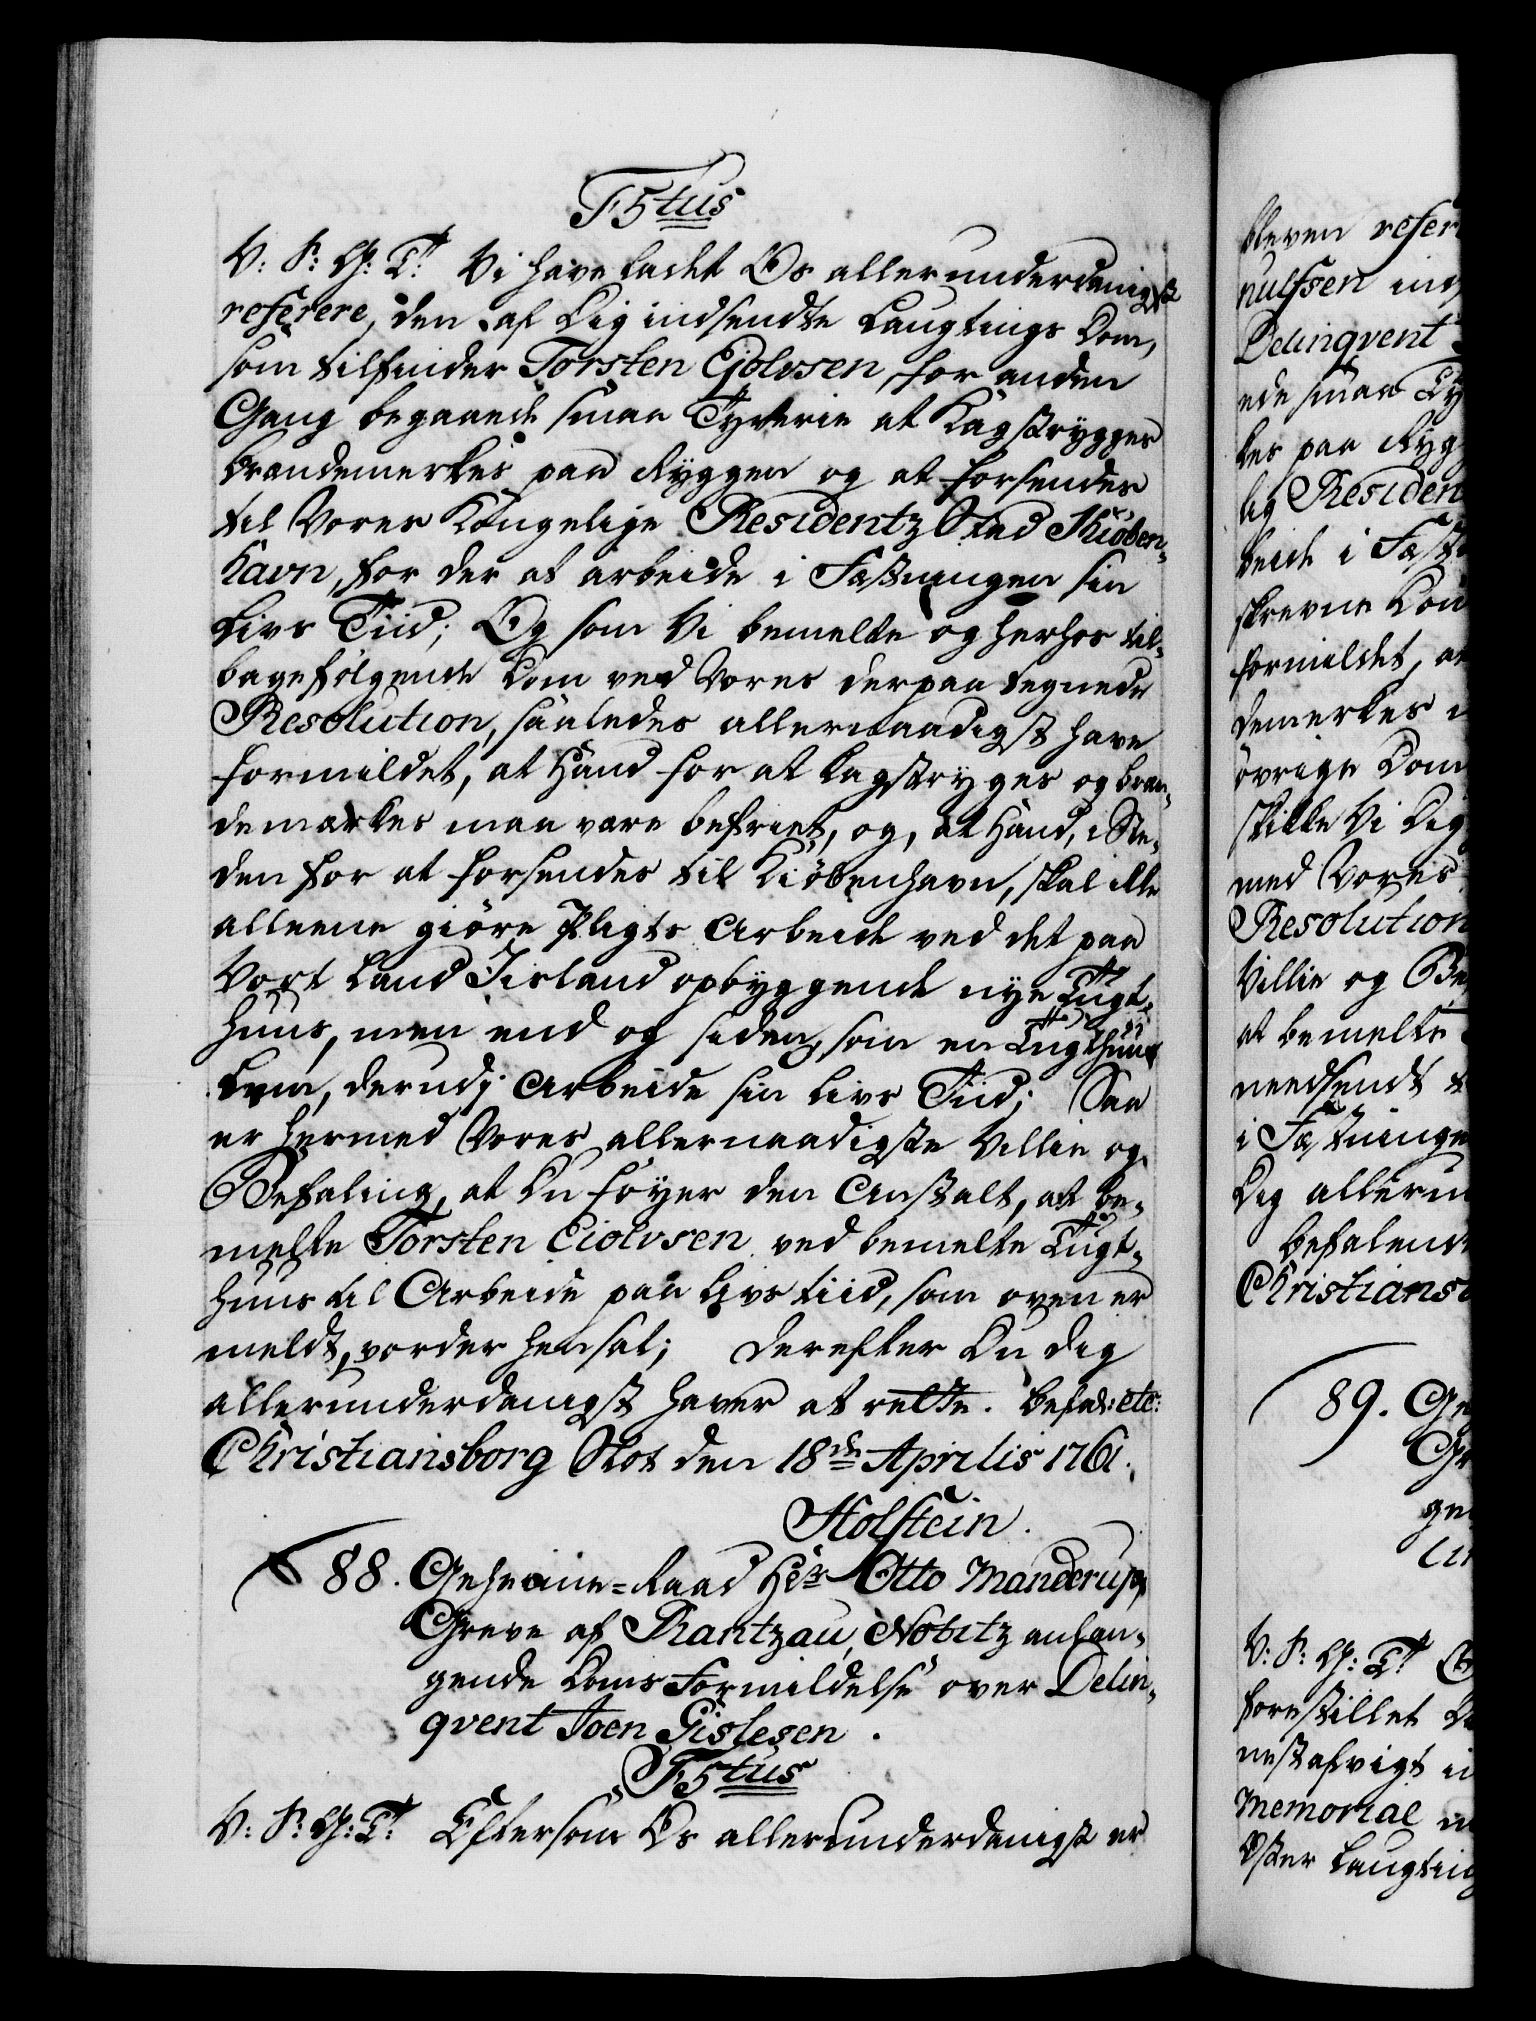 F5tus
V: F: G: T: Vi have ladet Os allerunderdanigst
referere, den af Dig indsendte Laugtings Dom,
som tilfinder Torsten Ejolvsen, for anden
Gang begaaede smaa Tyverie at Kagstryges
brændemerkes paa Ryggen og at forsendes
til Vores Kongelige Residentz Stad Kiøben-
havn, for der at arbeide i Fæstningen sin
Livs Tiid; Og som Vi bemelte og herhos til-
bagefølgende Dom ved Vores derpaa tegnede
Resolution, saaledes allernaadigst have
formildet, at Hand for at kagstryges og bræn-
demærkes maa være befriet, og, at Hand, i Ste-
den for at forsendes til Kiøbenhavn, skal ikke
alleene giøre Pligts Arbeide ved det paa
Vort Land Iisland opbyggende nye Tugt-
huus, men end og siden, som en Tugthuus
Lem, derudj Arbeide sin Livs Tiid; Saa
er hermed Vores allernaadigste Villie og
Befaling, at Du føyer den Anstalt, at be-
melte Torsten Eiolvsen ved bemelte Tugt-
huus til Arbeide paa Livs tiid, som oven er
meldt, vorder hensat; Derefter Du dig
allerunderdanigst haver at rette. Befal: etc:
Christiansborg Slot den 18de Aprilis 1761.
Holstein.
88. Geheime-Raad Hr Otto Manderup,
Greve af Rantzau, Notitz anlan-
gende Doms Formildelse over Delin-
qvent Joen Gislesen.
F5tus
V: F: G: T: Eftersom Os allerunderdanigst er
bleven refere
nulfsen ind
Delinqvent
ede smaa Ty
kes paa Ryg
lig Residen
beide i Fæst
skrevne Dom
formildet, at
demerkes
øvrige Dom
skikke Vi Dig
med Vores
Resolution
Villie og Be
at bemelte
needsendt
i Fæstninge
Dig allerun
Befalend
Christiansb
89. Ge
Gr
gen
V: F: G: T:
forestillet
Memorial
Øster Laugting